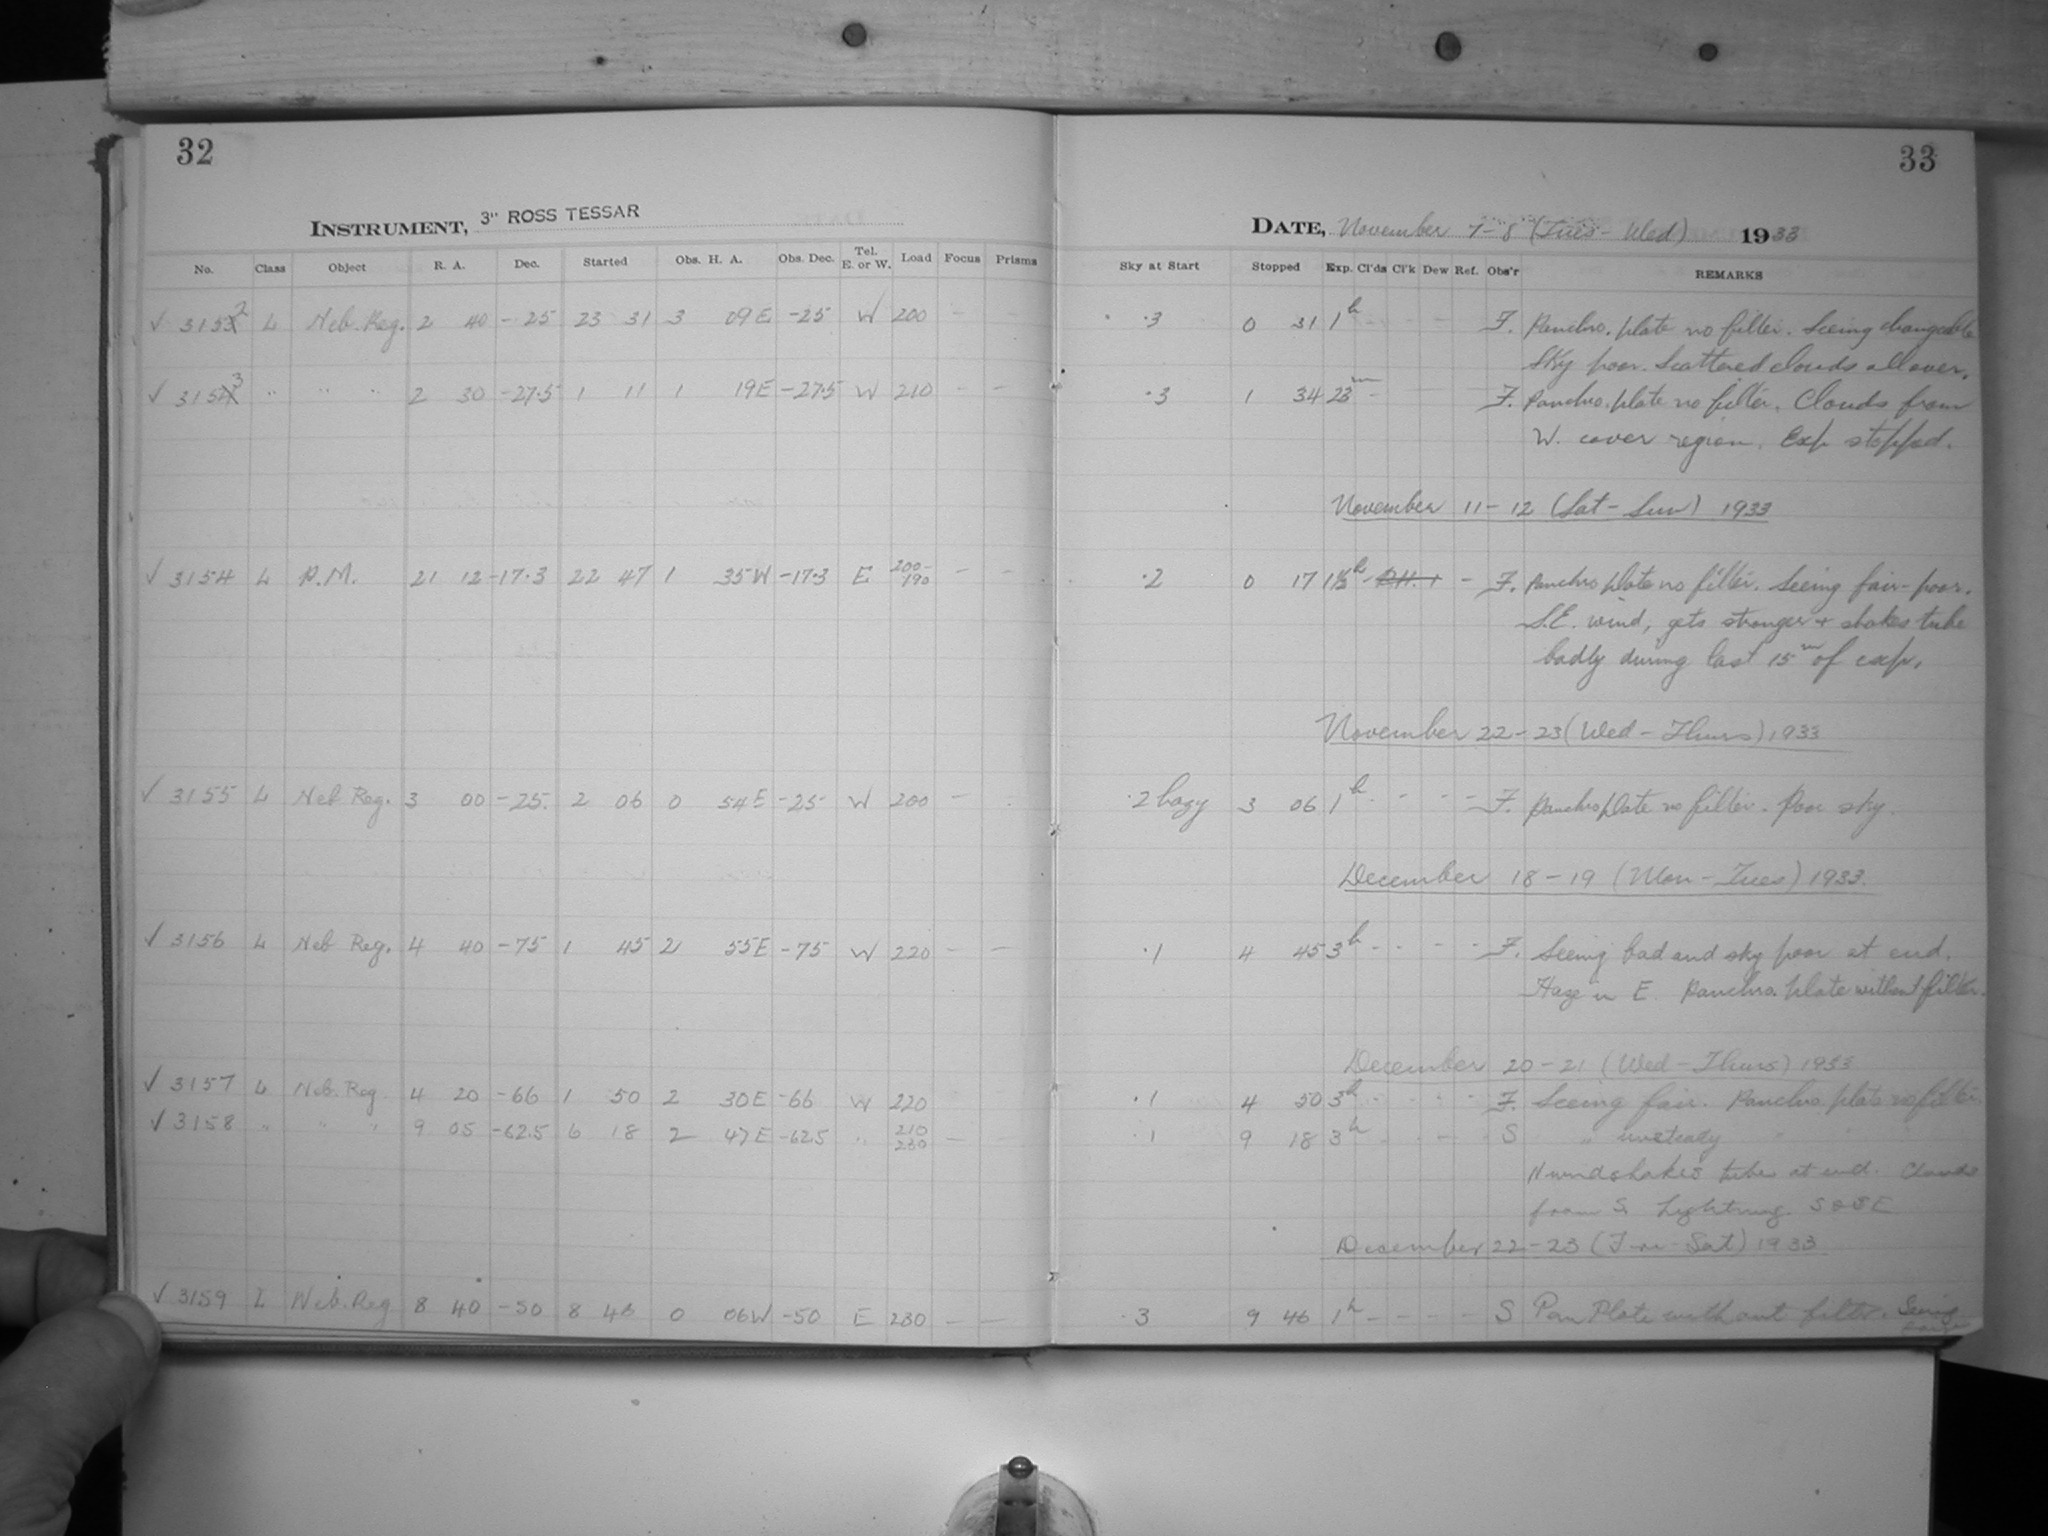 32
INSTRUMENT, 3" ROSS TESSAR
No. Class Object R. A. Dec. Started Obs. H. A. Obs. Dec. Tel. E. or W. Load Focus Prisms
✓ 3152 L Neb. Reg. 2 40 -25 23 31 3 09E -25 W 200 —
✓ 3153 " " " 2 30 -27.5 1 11 1 19E -27.5 W 210 — —
✓ 3154 L P.M. 21 12 -17.3 22 47 1 35W -17.3 E 200-190 — —
✓ 3155 L Neb Reg. 3 00 -25 2 06 0 54E -25 W 200 —
✓ 3156 L Neb Reg. 4 40 -75 1 45 2 55E -75 W 220 — —
✓ 3157 L Neb. Reg 4 20 -66 1 50 2 30E -66 W 220
✓ 3158 " " " 9 05 -62.5 6 18 2 47E -62.5 " 210 230 — —
✓ 3159 L Neb. Reg 8 40 -50 8 46 0 06W -50 E 230 — —
33
DATE, November 7-8 (Tues - Wed) 1933
Sky at Start Stopped Exp. Cl'ds Cl'k Dew Ref. Obs'r REMARKS
.3 0 31 1h - - - - F. Pancho. plate no filter. Seeing changeable
Sky poor. Scattered clouds all over.
.3 1 34 23m - F. Pancho. plate no filter. Clouds from
W. cover region. Exp stopped.
November 11-12 (Sat-Sun) 1933
.2 0 17 1½h - F. Pancho plate no filter. Seeing fair-poor.
S.E. wind, gets stronger + shakes tube
badly during last 15m of exp.
November 22-23 (Wed-Thurs) 1933
.2 hazy 3 06 1h - - - - F. Pancho plate no filter. Poor sky.
December 18-19 (Mon-Tues) 1933.
.1 4 45 3h - - - - F. Seeing bad and sky poor at end.
Haze in E. Pancho. plate without filter.
December 20-21 (Wed-Thurs) 1933
.1 4 50 3h - - - - F. Seeing fair. Pancho. plate no filter.
.1 9 18 3h - - - S " unsteady "
N wind shakes tube at end. Clouds
from S. Lightning S & SE
December 22-23 (Fri-Sat) 1933
.3 9 46 1h - - - - S Pan Plate without filter. Seeing